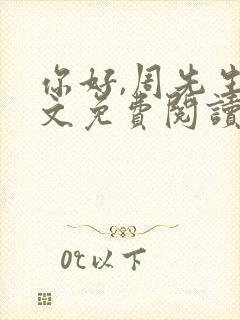 你好,周先生
文免费阅读
0℃以下